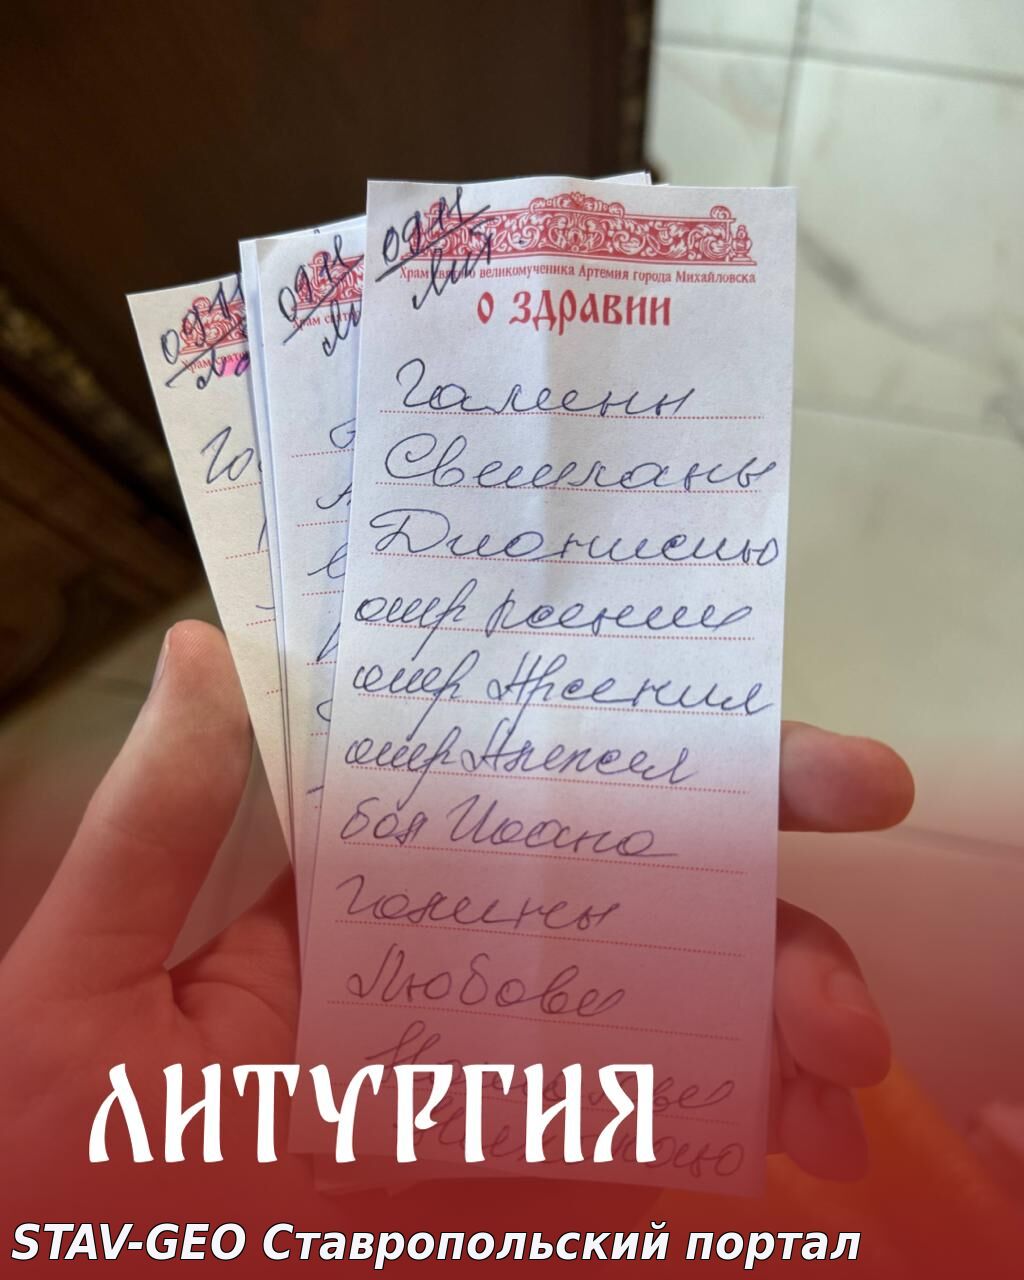 один
Лит
Храм святого великомученика Артемия города Михайловска
о здравии
Галины
Светланы
Дионисию
отр Ксении
отр Арсения
отр Алексея
боя Иоана
Галины
Любове
один
Ли
один
ЛИТУРГИЯ
STAV-GEO Ставропольский портал